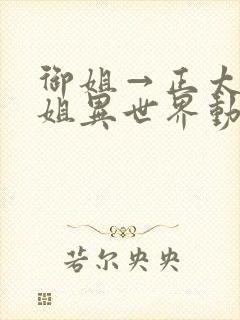 御姐→正太
姐異世界動
若尔央央